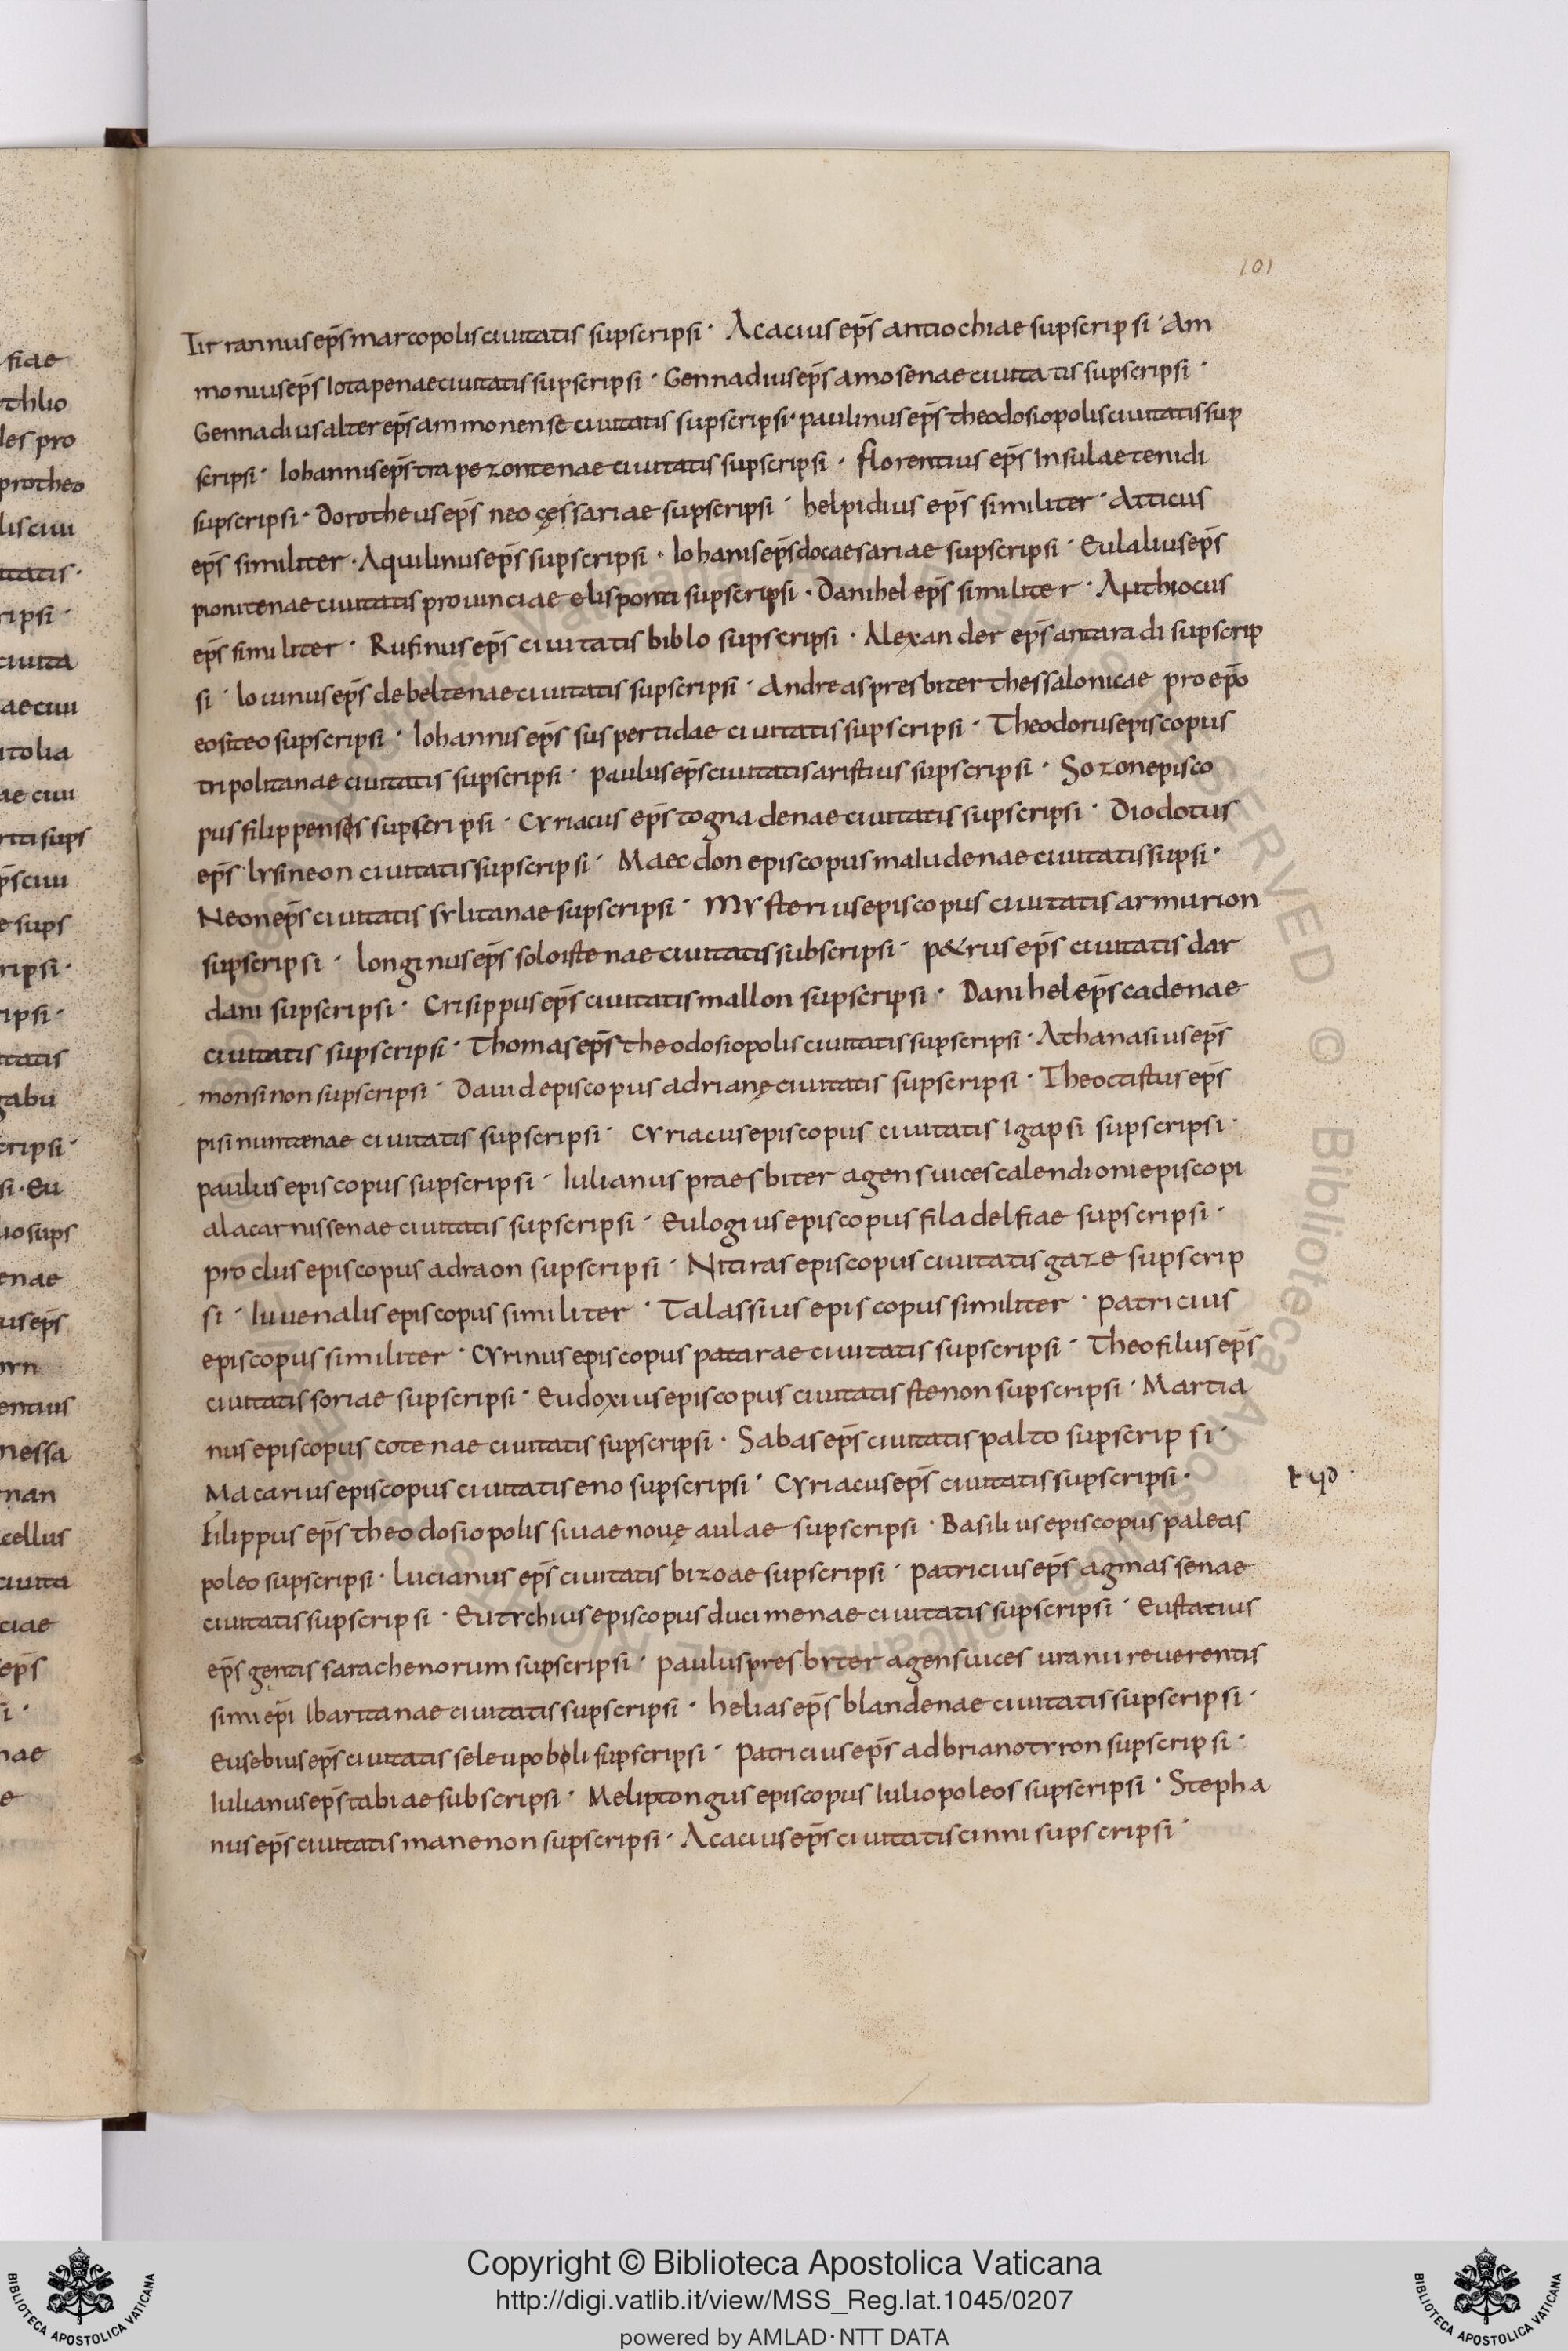 101
Tir rannus ep̄s marcopolis ciuitatis supscripsi · Acacius ep̄s antiochiae supscripsi · Am
monius ep̄s Iotapenae ciuitatis supscripsi · Gennadius ep̄s amosenae ciuitatis supscripsi ·
Gennadius alter ep̄s ammonense ciuitatis supscripsi · paulinus ep̄s theodosiopolis ciuitatis sup
scripsi · Iohannis ep̄s trapezontenae ciuitatis supscripsi · florentius ep̄s Insulae tenidi
supscripsi · Dorotheus ep̄s neo cęssariae supscripsi · helpidius ep̄s similiter · Atticus
ep̄s similiter · Aquilinus ep̄s supscripsi · Iohanis ep̄s docaesariae supscripsi · Eulalius ep̄s
pionitenae ciuitatis prouinciae elisponti supscripsi · Danihel ep̄s similiter · Anthiocus
ep̄s similiter · Rufinus ep̄s ciuitatis biblo supscripsi · Alexander ep̄s antaradi supscrip
si · Iouinus ep̄s debeltenae ciuitatis supscripsi · Andreas presbiter thessalonicae pro ep̄o
eositeo supscripsi · Iohannis ep̄s suspertidae ciuitatis supscripsi · Theodorus episcopus
tripolitanae ciuitatis supscripsi · paulus ep̄s ciuitatis aristius supscripsi · Sozon episco
pus filippenses supscripsi · Cyriacus ep̄s tognadenae ciuitatis supscripsi · Diodotus
ep̄s lysineon ciuitatis supscripsi · Maecdon episcopus maludenae ciuitatis supsi ·
Neon ep̄s ciuitatis sylitanae supscripsi · Mysterius episcopus ciuitatis armurion
supscripsi · longinus ep̄s soloistenae ciuitatis subscripsi · p&rus ep̄s ciuitatis dar
dani supscripsi · Crisippus ep̄s ciuitatis mallon supscripsi · Danihel ep̄s cadenae
ciuitatis supscripsi · Thomas ep̄s theodosiopolis ciuitatis supscripsi · Athanasius ep̄s
monsinon supscripsi · Dauid episcopus adrianę ciuitatis supscripsi · Theoctistus ep̄s
pisinuntænae ciuitatis supscripsi · Cyriacus episcopus ciuitatis Igapsi supscripsi ·
paulus episcopus supscripsi · Iulianus praesbiter agens uices calendioni episcopi
alacarnissenae ciuitatis supscripsi · Eulogius episcopus filadelfiae supscripsi ·
proclus episcopus adraon supscripsi · Nitiras episcopus ciuitatis gaze supscrip
si · Iuuenalis episcopus similiter · Talassius episcopus similiter · patricius
episcopus similiter · Cyrinus episcopus patarae ciuitatis supscripsi · Theofilus ep̄s
ciuitatis soriae supscripsi · Eudoxius episcopus ciuitatis stenon supscripsi · Martia
nus episcopus cotenae ciuitatis supscripsi · Sabas ep̄s ciuitatis palto supscripsi ·
Macarius episcopus ciuitatis eno supscripsi · Cyriacus ep̄s ciuitatis supscripsi ·
Filippus ep̄s theodosiopolis siuae nouę aulae supscripsi · Basilius episcopus paleas
poleo supscripsi · Lucianus ep̄s ciuitatis bizoae supscripsi · patricius ep̄s agmassenae
ciuitatis supscripsi · Eutychius episcopus ducimenae ciuitatis supscripsi · Eustatius
ep̄s gentis sarachenorum supscripsi · paulus presbyter agens uices uranii reuerentis
simi ep̄i Ibaritanae ciuitatis supscripsi · helias ep̄s blandenae ciuitatis supscripsi ·
Eusebius ep̄s ciuitatis seleupoboli supscripsi · patricius ep̄s adbrianotyron supscripsi ·
Iulianus ep̄s tabiae subscripsi · Meliptongus episcopus Iuliopoleos supscripsi · Stepha
nus ep̄s ciuitatis manenon supscripsi · Acacius ep̄s ciuitatis cinni supscripsi ·
Copyright © Biblioteca Apostolica Vaticana
http://digi.vatlib.it/view/MSS_Reg.lat.1045/0207
powered by AMLAD·NTT DATA
BIBLIOTECA APOSTOLICA VATICANA
BIBLIOTECA APOSTOLICA VATICANA